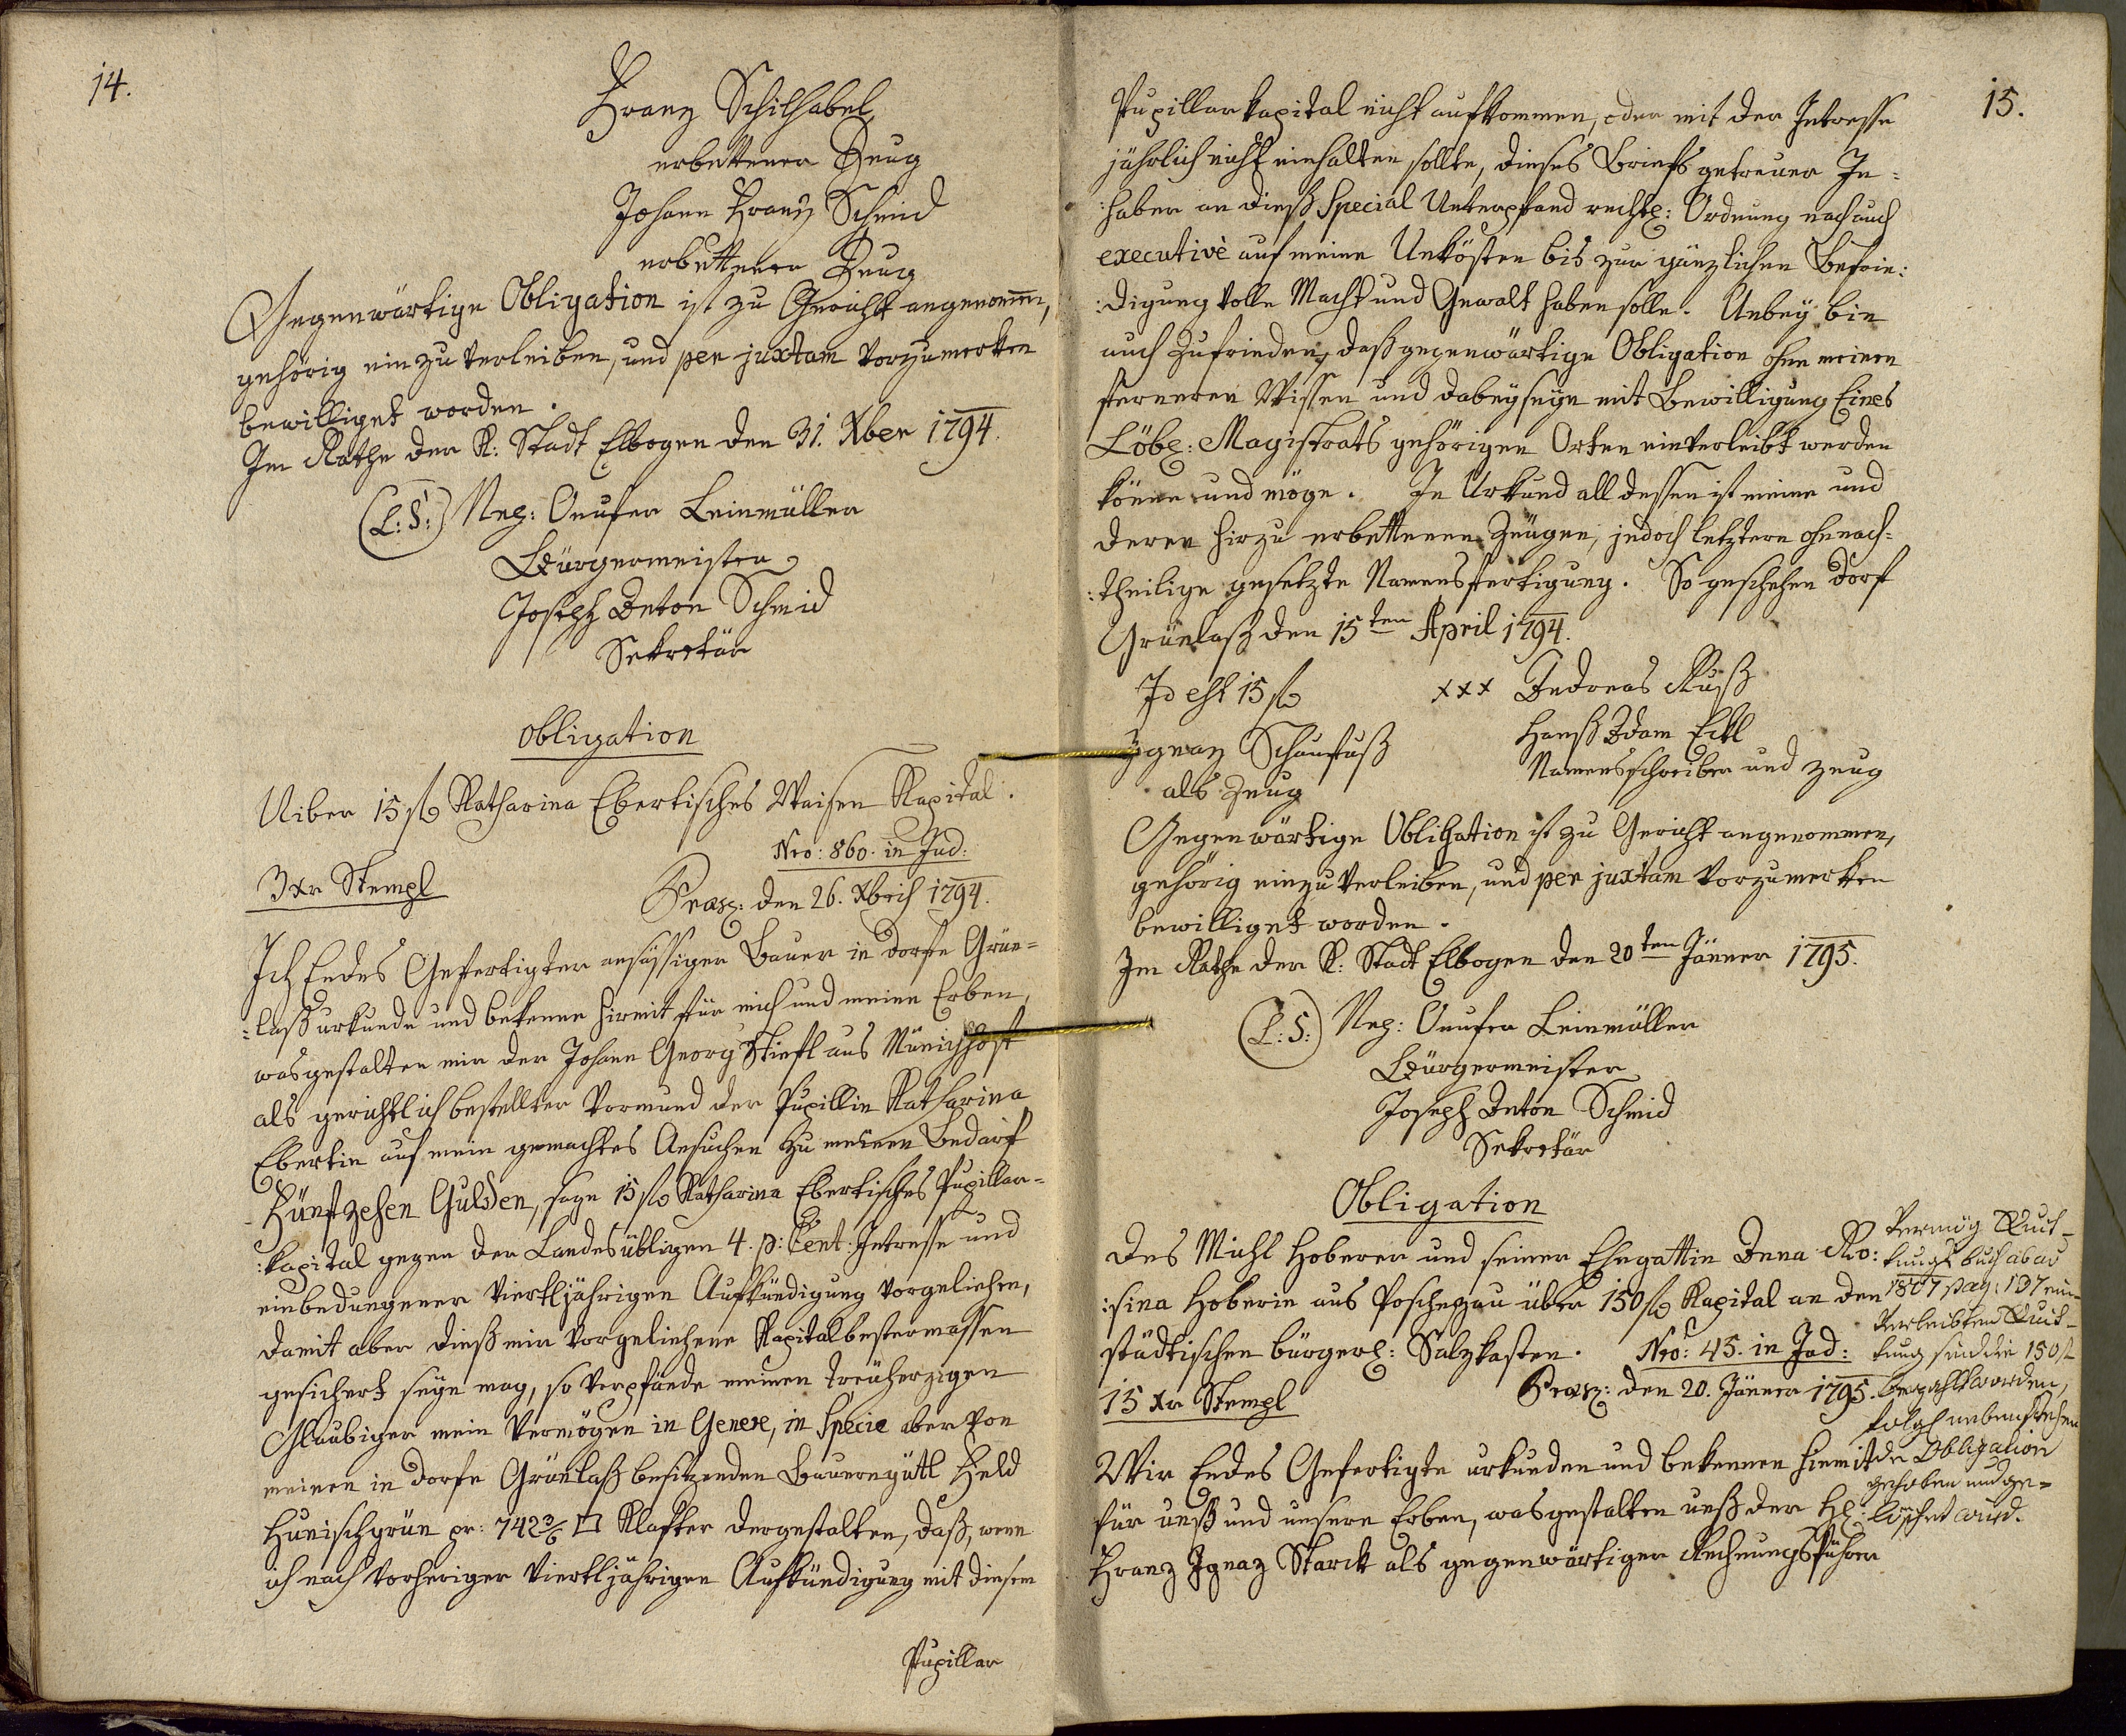 14.
Franz Schilhabel
erbettener Zeug
Johann Franz Schmid
erbettener Zeug
Gegenwärtige Obligation ist zu Gericht angenommen,
gehörig einzuverleiben, und per juxtam vorzumerken
bewilliget worden.
Im Rathe der K: Stadt Elbogen den 31. Xber 1794.
(L: S:) Weg: Onufer Leinmüller
Bürgermeister
Joseph Anton Schmid
Sekretär
Obligation
Uiber 15 f Katharina Ebertisches Waisen Kapital.
Nro: 860. in Jud:
3 xr Stempl
Praes: den 26. Xbris 1794.
Ich Endes Gefertigter ansässiger Bauer in Dorfe Grün=
:laß urkunde und bekenne hiemit für mich und meine Erben,
wasgestalten mir der Johann Georg Stiefl aus Münichhof
als gerichtlich bestellter Vormund der Pupillin Katharina
Ebertin auf mein gemachtes Ansuchen zu meinen Bedarf
Fünfzehen Gulden, sage 15 f Katharina Ebertisches Pupillar=
:kapital gegen der Landesübligen 4. p: Cent: Intresse und
einbedungener viertljährigen Aufkündigung vorgeliehen,
damit aber dieß mir vorgeliehene Kapital bestermassen
gesichert seyn mag, so verpfände meinen treüherzigen
Glaubiger mein Vermögen in Genere, in Specie aber von
meinen in Dorfe Grünlaß besitzenden Bauerngütl Feld
Hunischgrün pr: 742 3/6 □ Klafter dergestalten, daß, wenn
ich nach vorheriger viertljährigen Aufkündigung mit diesem
Pupillar
15.
Pupillarkapital nicht aufkommen, oder mit der Intresse
jährlich nicht einhalten sollte, dieses Briefs getreuer In=
:haber an dieß Special Unterpfand rechtl: Ordnung nach auch
executivè auf meine Unkösten bis zur gänzlichen Befrie:
:digung volle Macht und Gewalt haben solle. Anbey bin
auch zufrieden, daß gegenwärtige Obligation ohne meinen
ferneren Wissen und dabeyseyn mit Bewilligung Eines
Löbl: Magistrats gehörigen Orten einverleibt werden
könne und möge. In Urkund all dessen ist meine und
deren hirzu erbettenen Zeügen, jedoch letztern ohnnach=
:theilige gesetzte Namensfertigung. So geschehen Dorf
Grünlaß den 15ten April 1794.
Id est 15 f
xxx Andreas Ruß
Ygnaz Schaufuß
Hanß Adam Eckl
als Zeug
Namensschreiber und Zeug
Gegenwärtige Obligation ist zu Gericht angenommen,
gehörig einzuverleiben, und per juxtam vorzumerken
bewilliget worden.
Im Rathe der K: Stadt Elbogen den 20ten Jänner 1795.
(L: S:) Weg: Onufer Leinmüller
Bürgermeister
Joseph Anton Schmid
Sekretär
Obligation
Des Michl Hoberer und seiner Ehegattin Anna Ro:
:sina Hoberin aus Poschezau über 150 f Kapital an den
städtischen bürgerl: Salzkasten. Nro: 45. in Jud:
15 xr Stempl
Praes: den 20. Jänner 1795.
Wir Endes Gefertigte urkunden und bekennen hiemit
für unß und unsere Erben, wasgestalten unß der H:
Franz Ignaz Starck als gegenwärtiger Rechnungsführer
Vermög Quit=
tungs buch ab ao
1807 pag: 137 ein
verleibten Quit=
tung sind die 150 f
bezahlt worden,
folgl nebenstehen
de Obligation
gehoben und ge=
löschet wird.